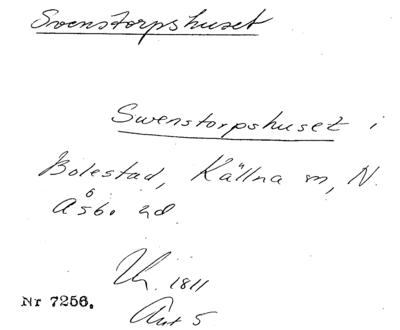 Svenstorpshuset
Swenstorpshuset i
Bolestad, Källna sn, N.
Åsbo hd.
1811
Nr 7256. Art 5